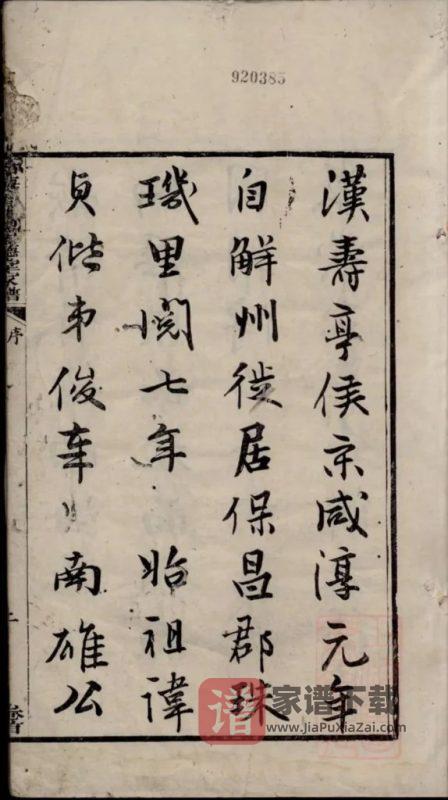 920385
漢壽亭侯宗咸淳元年
自解州徙居保昌郡珠
璣里閱七年 始祖諱
貞偕弟俊率 南雄公
家譜
序
家谱下载
www.JiaPuXiaZai.com
谱